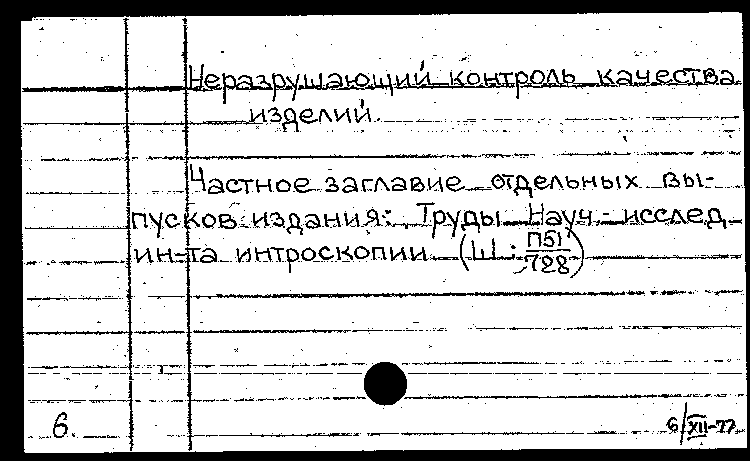 Неразрушающий контроль качества
изделий.
Частное заглавие отдельных вы-
пусков издания: Труды Науч.-исслед.
ин-та интроскопии (Ш: П51/728)
6.
6/XII-77